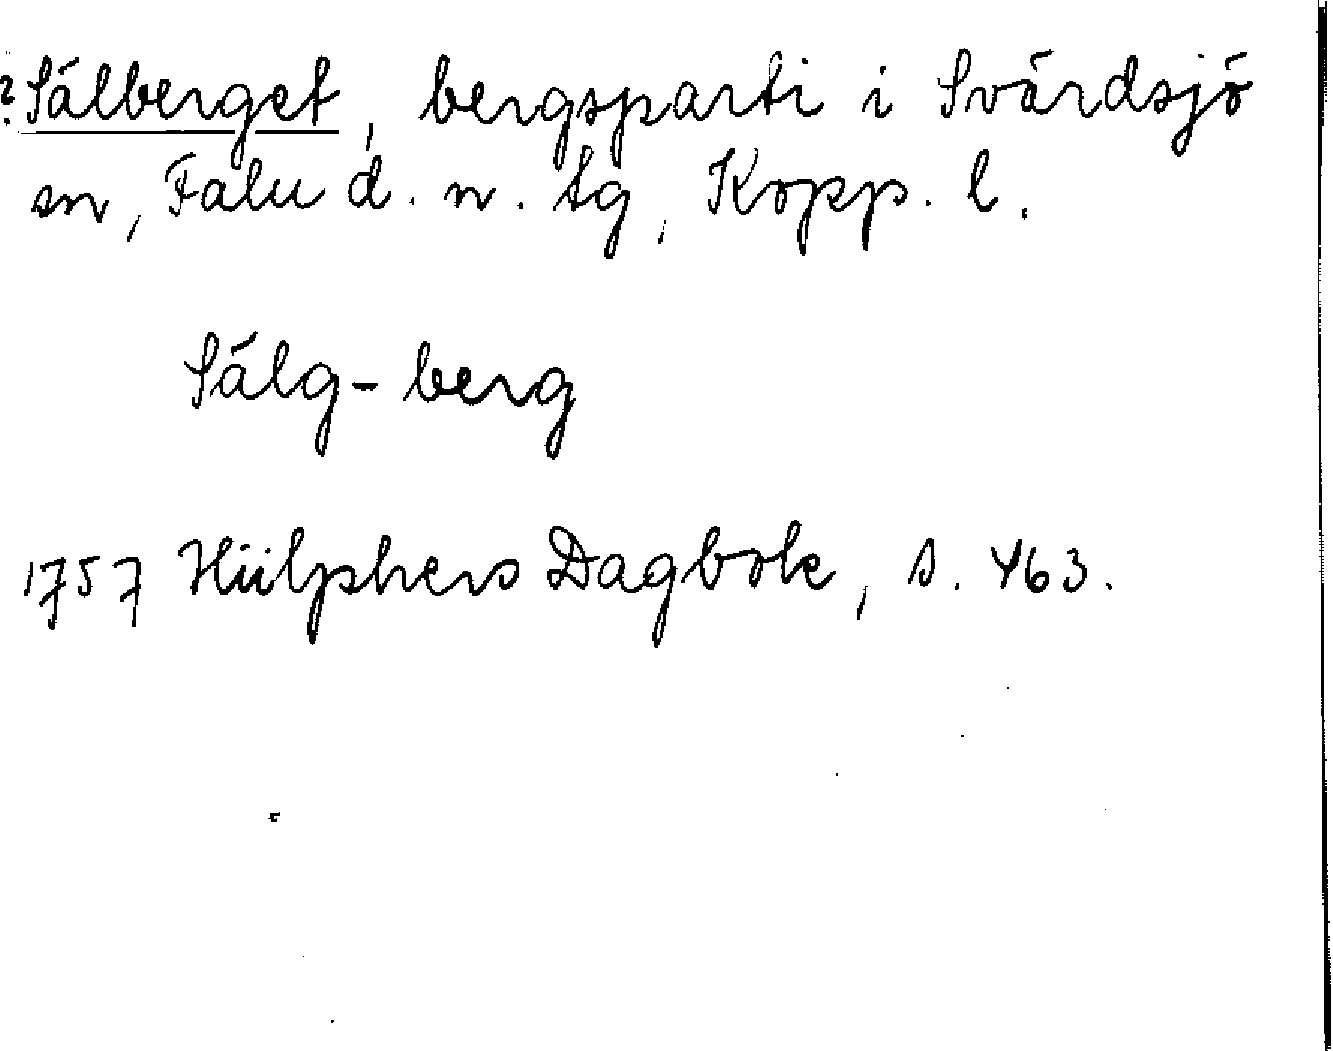 ? Sälberget, bergsparti i Svärdsjö
sn, Falu d. n. tg, Kopp. l.
Sälg-berg
1757 Hülphers Dagbok, s. 463.